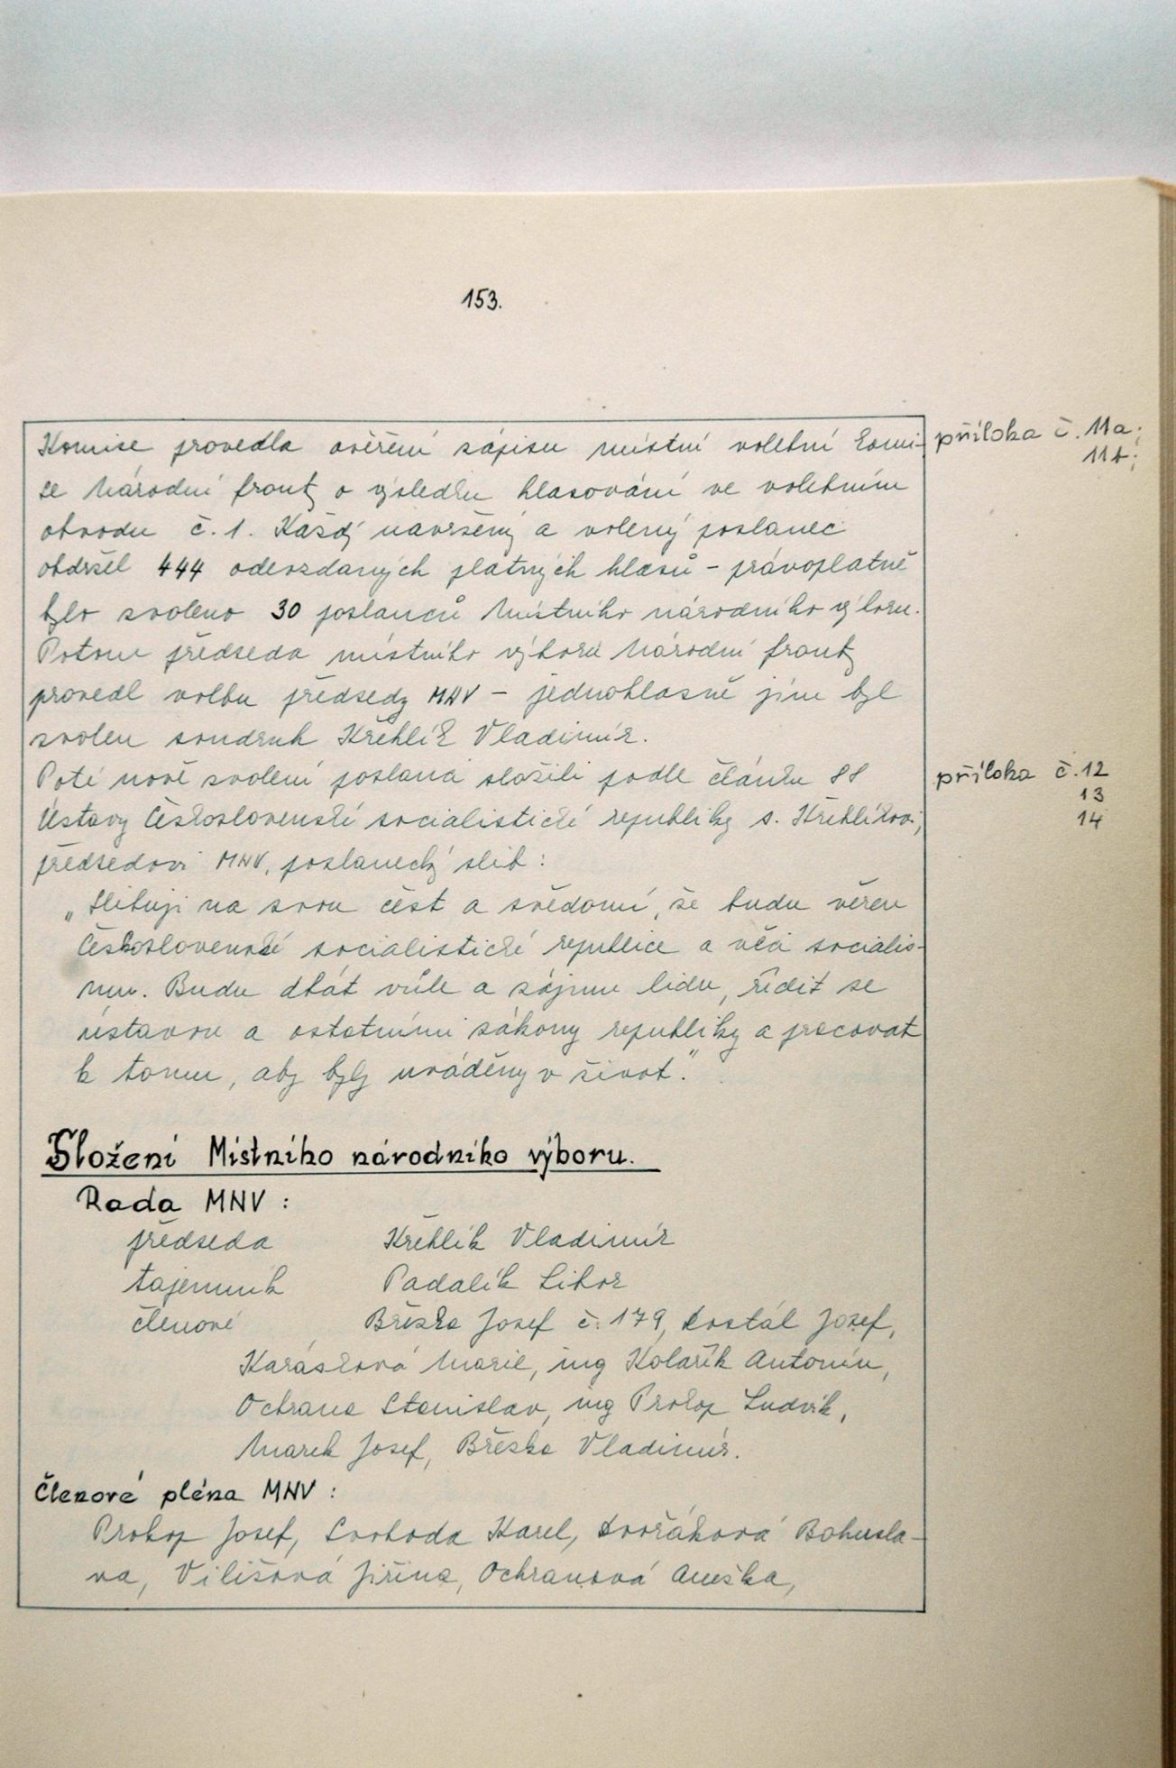 153.
Komise provedla ověření zápisu místní volební komi-
příloha č. 11a;
11b;
se Národní fronty o výsledku hlasování ve volebním
obvodu č. 1. Každý navržený a volený poslanec
obdržel 444 odevzdaných platných hlasů – právoplatně
bylo zvoleno 30 poslanců Místního národního výboru.
Potom předseda místního výboru Národní fronty
provedl volbu předsedy MNV – jednohlasně jím byl
zvolen soudruh Křehlík Vladimír.
Poté nově zvolení poslanci složili podle článku 88
příloha č. 12
13
14
Ústavy Československé socialistické republiky s. Křehlíkovi,
předsedovi MNV, poslanecký slib:
„Slibuji na svou čest a svědomí, že budu věren
Československé socialistické republice a věci socialis-
mu. Budu dbát vůle a zájmu lidu, řídit se
ústavou a ostatními zákony republiky a pracovat
k tomu, aby byly uváděny v život."
Složení Místního národního výboru.
Rada MNV :
předseda Křehlík Vladimír
tajemník Padalík Libor
členové Břeska Josef č. 179, Dostál Josef,
Karásková Marie, ing Kolařík Antonín,
Ochrana Stanislav, ing Prokop Ludvík,
Marek Josef, Břeska Vladimír.
Členové pléna MNV :
Prokop Josef, Svoboda Karel, Dvořáková Bohusla-
va, Vilišová Jiřina, Ochranová Anežka,